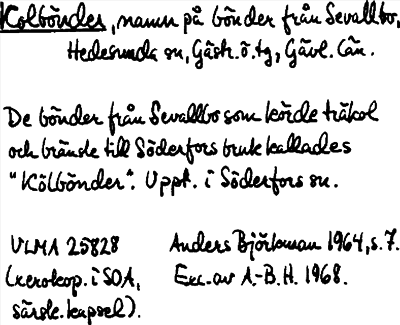 Kolbönder, namn på bönder från Sevallbo,
Hedesunda sn, Gästr. ö. tg, Gävl. län.
De bönder från Sevallbo som körde träkol
och bränsle till Söderfors bruk kallades
"Kölbönder". Uppt. i Söderfors sn.
ULMA 25828 Anders Björkman 1964, s. 7.
(xerokop. i SOA, Exc. av A.-B. H. 1968.
särsk. kapsel).